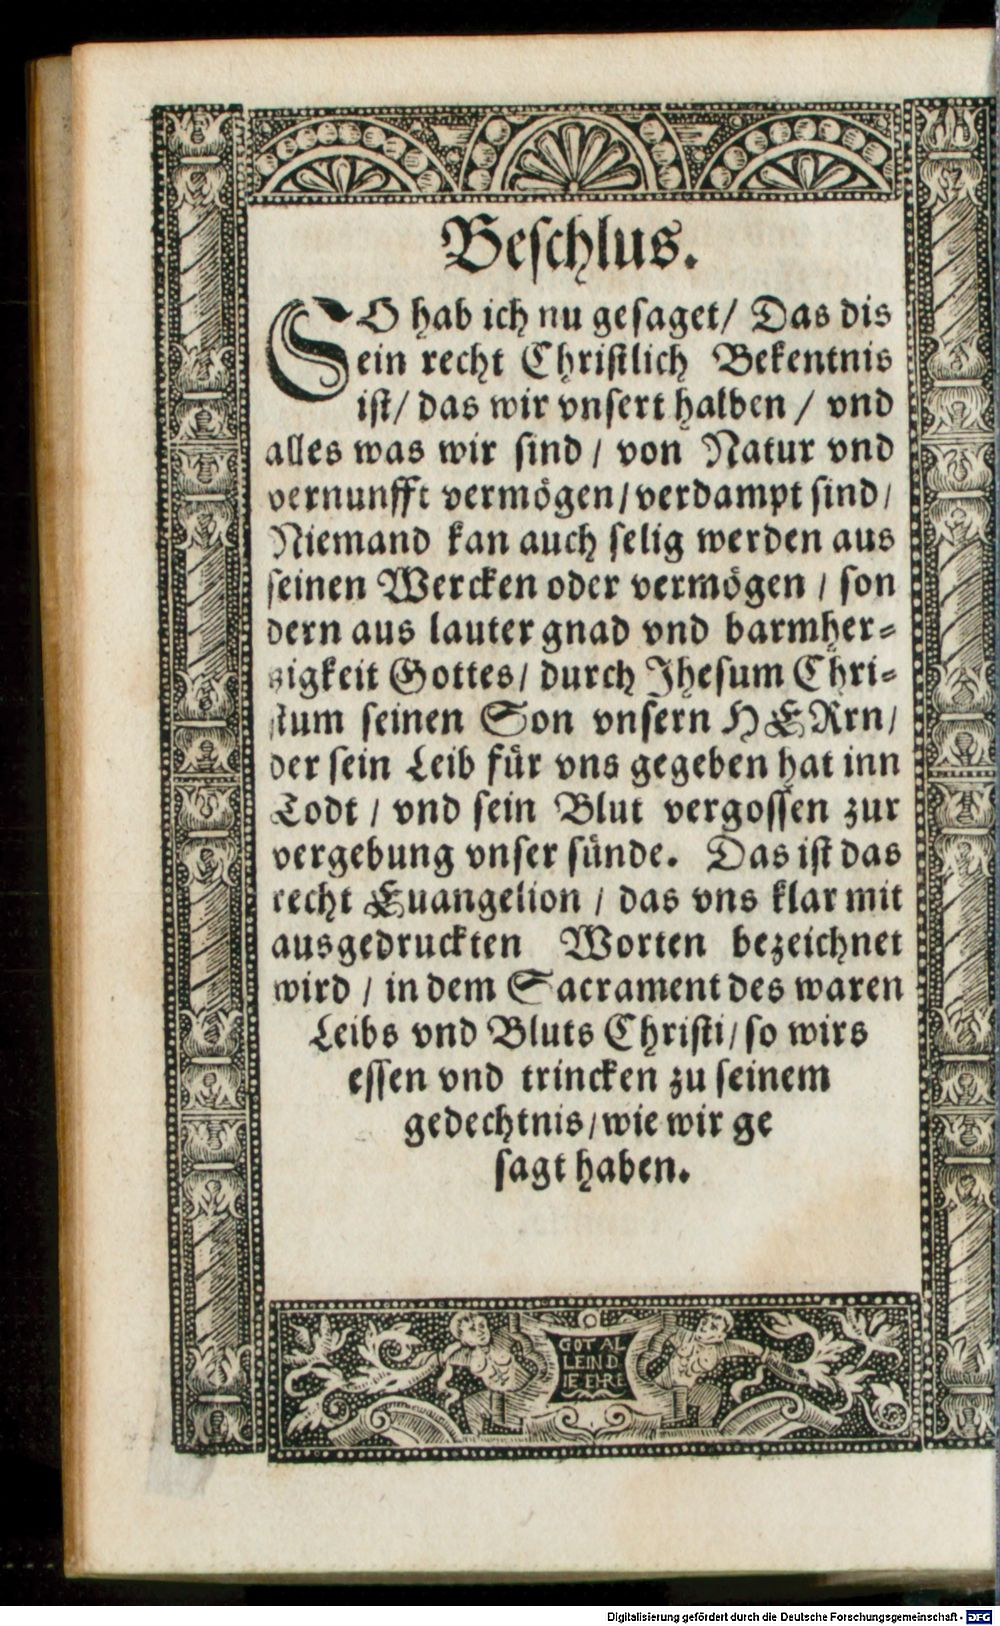 Beschlus.
SO hab ich nu gesaget/ Das dis
ein recht Christlich Bekentnis
ist/ das wir vnsert halben / vnd
alles was wir sind / von Natur vnd
vernunfft vermögen/verdampt sind/
Niemand kan auch selig werden aus
seinen Wercken oder vermögen / son
dern aus lauter gnad vnd barmher-
zigkeit Gottes/ durch Jhesum Chri-
stum seinen Son vnsern HERrn/
der sein Leib für vns gegeben hat inn
Todt / vnd sein Blut vergossen zur
vergebung vnser sünde. Das ist das
recht Euangelion / das vns klar mit
ausgedruckten Worten bezeichnet
wird / in dem Sacrament des waren
Leibs vnd Bluts Christi/ so wirs
essen vnd trincken zu seinem
gedechtnis/wie wir ge
sagt haben.
GOT AL
LEIN D
IE EHRE
Digitalisierung gefördert durch die Deutsche Forschungsgemeinschaft - DFG